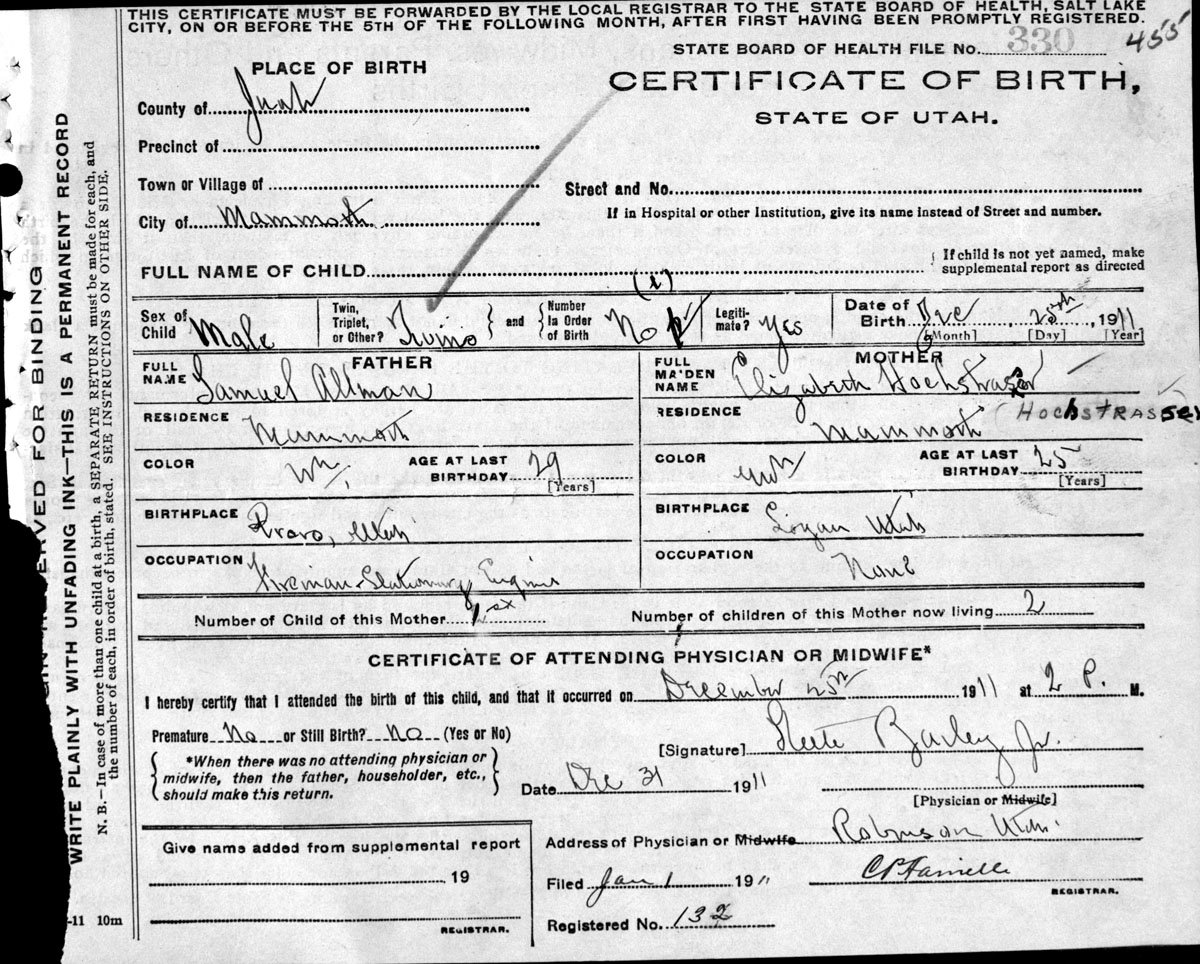 THIS CERTIFICATE MUST BE FORWARDED BY THE LOCAL REGISTRAR TO THE STATE BOARD OF HEALTH, SALT LAKE
CITY, ON OR BEFORE THE 5TH OF THE FOLLOWING MONTH, AFTER FIRST HAVING BEEN PROMPTLY REGISTERED.
STATE BOARD OF HEALTH FILE No. 330 455
PLACE OF BIRTH
CERTIFICATE OF BIRTH,
STATE OF UTAH.
County of Juab
Precinct of
Town or Village of
Street and No.
City of Mammoth
If in Hospital or other Institution, give its name instead of Street and number.
FULL NAME OF CHILD
{ If child is not yet named, make
supplemental report as directed
Sex of Child Male
Twin, Triplet, or Other? Twins } and { Number In Order of Birth No
Legiti- mate? Yes
Date of Birth Dec 25th, 1911
[Month] [Day] [Year]
FATHER
MOTHER
FULL NAME Samuel Allman
FULL MA'DEN NAME Elizabeth Hochstrasser
(HOCHSTRASSER
RESIDENCE Mammoth
RESIDENCE Mammoth
COLOR Wh. AGE AT LAST BIRTHDAY 29 [Years]
COLOR Wh AGE AT LAST BIRTHDAY 25 [Years]
BIRTHPLACE Provo, Utah
BIRTHPLACE Logan Utah
OCCUPATION Fireman-Stationary Engine
OCCUPATION None
Number of Child of this Mother 1st
Number of children of this Mother now living 2
CERTIFICATE OF ATTENDING PHYSICIAN OR MIDWIFE*
I hereby certify that I attended the birth of this child, and that it occurred on December 25th 1911 at 2 P. M.
Premature No or Still Birth? No (Yes or No)
[Signature] Steele Bailey Jr.
{ *When there was no attending physician or
midwife, then the father, householder, etc.,
should make this return. }
Date Dec 31 1911
[Physician or Midwife]
Address of Physician or Midwife Robinson Utah.
Give name added from supplemental report
19
REGISTRAR.
Filed Jan 1 19"
REGISTRAR.
Registered No. 132
-11 10m
RESERVED FOR BINDING
WRITE PLAINLY WITH UNFADING INK—THIS IS A PERMANENT RECORD
N. B.—In case of more than one child at a birth, a SEPARATE RETURN must be made for each, and
the number of each, in order of birth, stated. SEE INSTRUCTIONS ON OTHER SIDE.